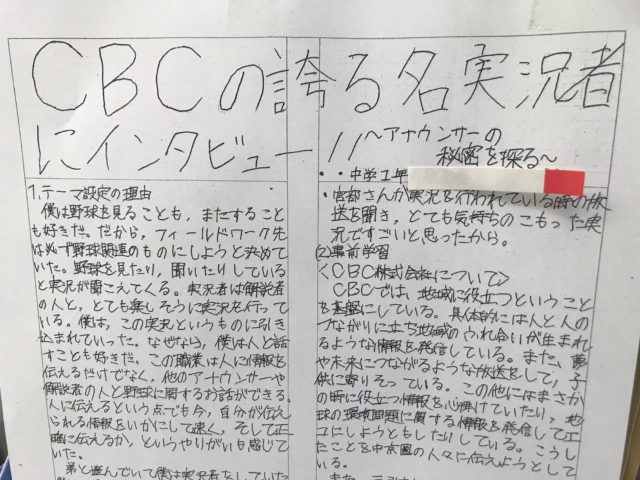 CBCの誇る名実況者
にインタビュー!!
～アナウンサーの
秘密を探る～
・・中学1年
1.テーマ設定の理由
僕は野球を見ることも,またすること
も好きだ。だから,フィールドワーク先
は必ず野球関連のものにしようと決めて
いた。野球を見たり,聞いたりしている
と実況が聞こえてくる。実況者は解説者
の人と,とても楽しそうに実況を行って
いる。僕は,この実況というものに引き
込まれていった。なぜなら,僕は人と話
すことも好きだ。この職業は人に情報を
伝えるだけでなく,他のアナウンサーや
解説者の人と野球に関するお話ができる。
人に伝えるという点でも今,自分が伝え
られる情報をいかにして速く,そして正
確に伝えるか,というやりがいも感じて
いた。
弟と遊んでいて僕は実況者をしていた
・宮部さんが実況を行われている時の放
送を聞き,とても気持ちのこもった実
況ですごいと思ったから。
(2)事前学習
<CBC株式会社について>
CBCでは,地域に役立つということ
を基盤にしている。具体的には人と人の
つながりに立ち地域のふれ合いが生まれ
るような情報を発信している。また,夢
や未来につながるような放送をして,子
供に寄りそっている。この他にはまさか
の時に役立つ情報を心掛けていたり,地
球の環境問題に関する情報を発信してエ
コにしようともしたりしている。こうし
たことを中京圏の人々に伝えようとして
いる。